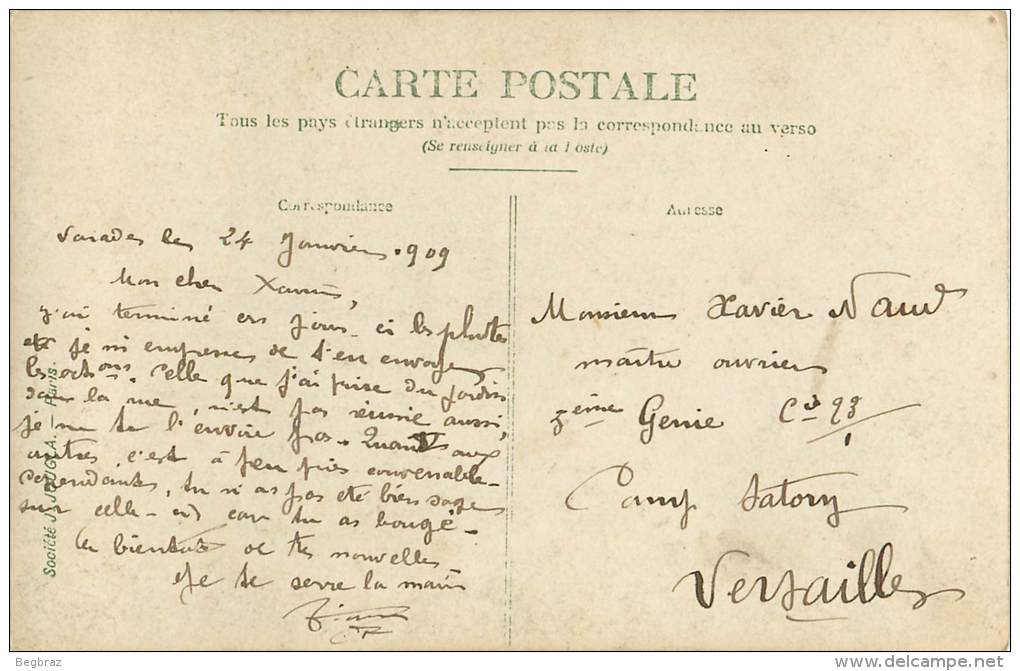 CARTE POSTALE
Tous les pays étrangers n'acceptent pas la correspondance au verso
(Se renseigner à la Poste)
Correspondance
Adresse
Société J. JOUGLA. — Paris.
les 24 Janvier 1909
Mon cher Xavier,
j'ai terminé ces jours-ci les
et je m'empresse de t'en envoyer
les Celle que j'ai prise du jardin
dans la rue, n'est pas réussie aussi,
je ne te l'envoie pas. Quant aux
autres c'est à peu près convenable
cependant, tu n'as pas été bien sage
sur celle-ci car tu as bougé.
A bientôt de tes nouvelles
Je te serre la main
Monsieur Xavier Naud
maître ouvrier
5ème Genie Cie 23/1
Camp Satory
Versailles
Begbraz
delcampe.net